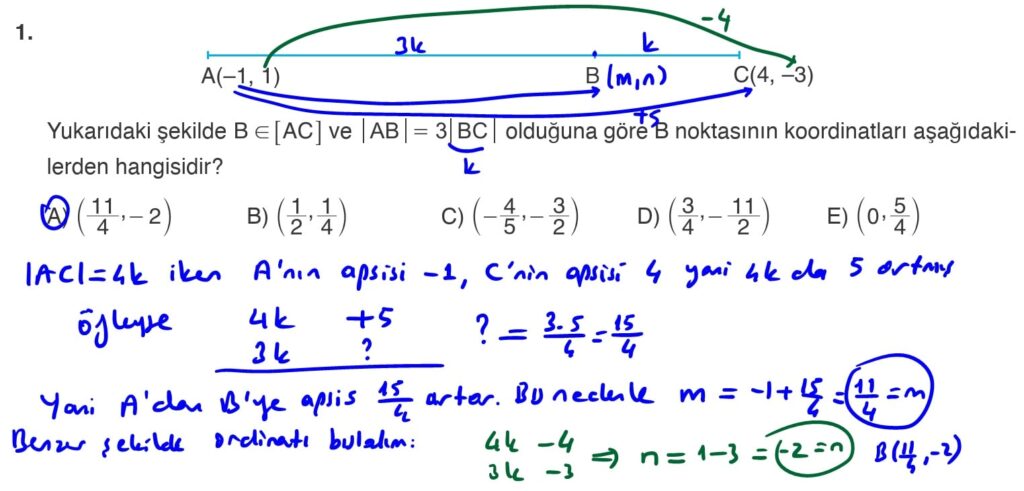 1.
3k k -4
A(−1, 1) B (m,n) C(4, −3)
+5
Yukarıdaki şekilde B ∈ [AC] ve |AB| = 3|BC| olduğuna göre B noktasının koordinatları aşağıdaki-
k
lerden hangisidir?
A) (11/4, −2) B) (1/2, 1/4) C) (−4/5, −3/2) D) (3/4, −11/2) E) (0, 5/4)
|AC|=4k iken A'nın apsisi -1, C'nin apsisi 4 yani 4k da 5 artmış
öyleyse 4k +5 ? = 3.5/4 = 15/4
3k ?
Yani A'dan B'ye apsis 15/4 artar. Bu nedenle m = -1+15/4 = 11/4 = m
Benzer şekilde ordinatı bulalım: 4k -4
3k -3 ⇒ n = 1-3 = -2 = n B(11/4, -2)